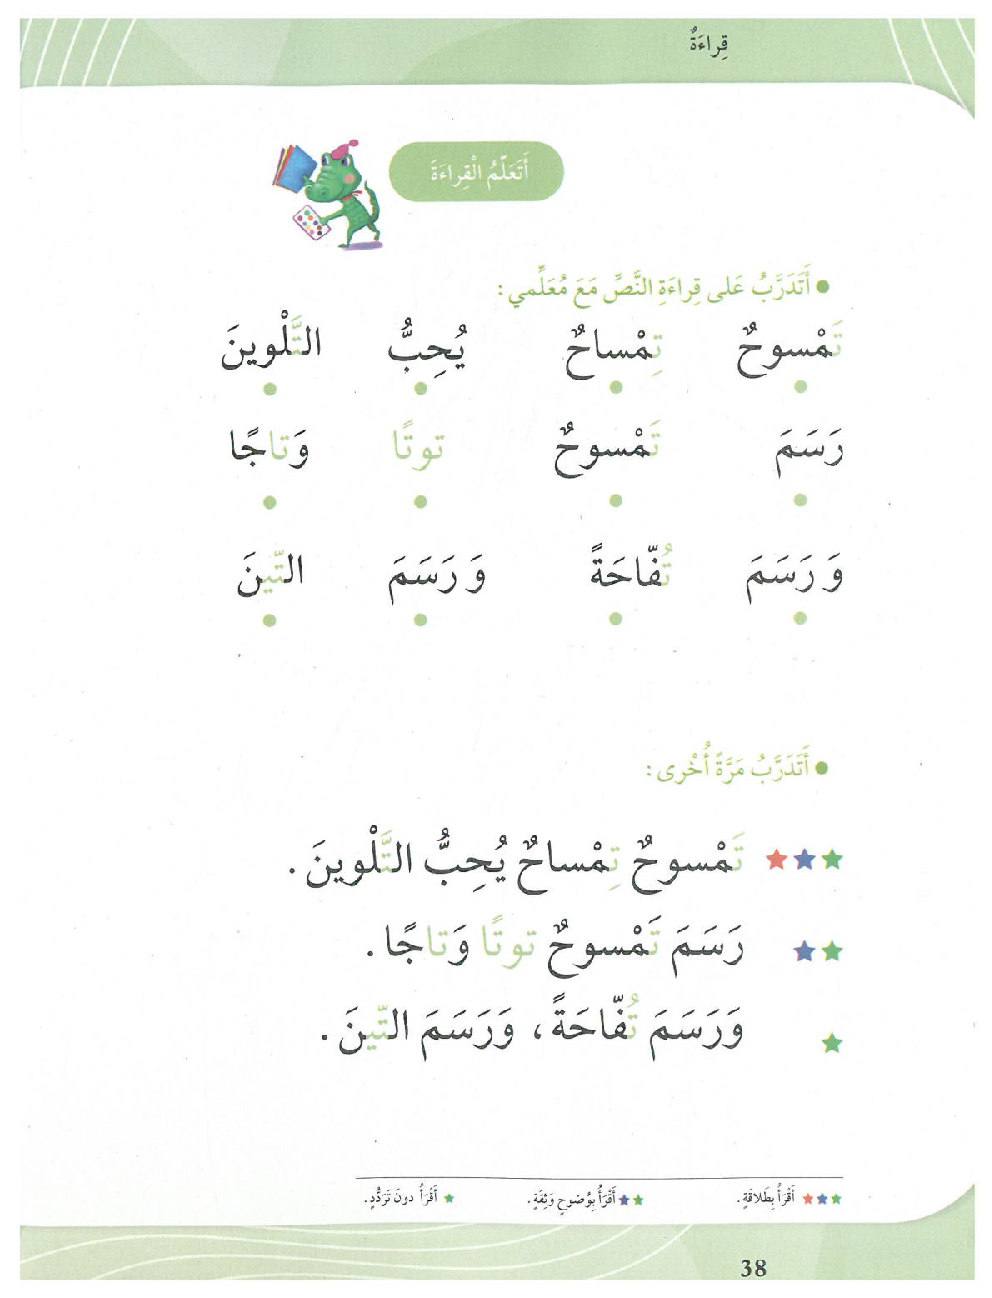 قِراءَةٌ
أَتَعَلَّمُ الْقِراءَةَ
● أَتَدَرَّبُ عَلى قِراءَةِ النَّصِّ مَعَ مُعَلِّمي :
تَمْسوحٌ تِمْساحٌ يُحِبُّ التَّلْوينَ
رَسَمَ تَمْسوحٌ توتًا وَتاجًا
وَرَسَمَ تُفّاحَةً وَرَسَمَ التّينَ
● أَتَدَرَّبُ مَرَّةً أُخْرى :
تَمْسوحٌ تِمْساحٌ يُحِبُّ التَّلْوينَ .
رَسَمَ تَمْسوحٌ توتًا وَتاجًا .
وَرَسَمَ تُفّاحَةً ، وَرَسَمَ التّينَ .
★★★ أَقْرَأُ بِطَلاقَةٍ . ★★ أَقْرَأُ بِوُضوحٍ وَثِقَةٍ . ★ أَقْرَأُ دونَ تَرَدُّدٍ .
38